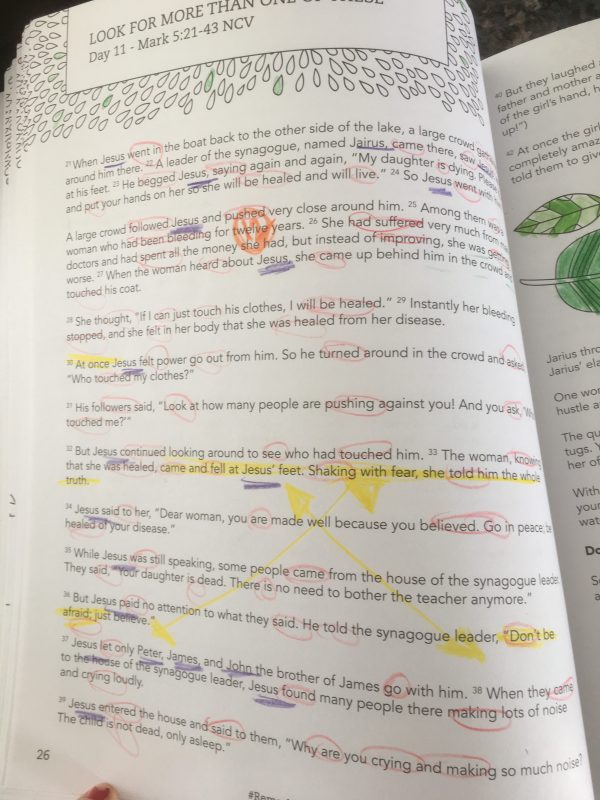 LOOK FOR MORE THAN ONE OF THESE
Day 11 - Mark 5:21-43 NCV
21 When Jesus went in the boat back to the other side of the lake, a large crowd
around him there. 22 A leader of the synagogue, named Jairus, came there, saw Jesus
at his feet. 23 He begged Jesus, saying again and again, “My daughter is dying. Please
and put your hands on her so she will be healed and will live.” 24 So Jesus went with
A large crowd followed Jesus and pushed very close around him. 25 Among them was
woman who had been bleeding for twelve years. 26 She had suffered very much from
doctors and had spent all the money she had, but instead of improving, she was getting
worse. 27 When the woman heard about Jesus, she came up behind him in the crowd and
touched his coat.
28 She thought, “If I can just touch his clothes, I will be healed.” 29 Instantly her bleeding
stopped, and she felt in her body that she was healed from her disease.
30 At once Jesus felt power go out from him. So he turned around in the crowd and asked
“Who touched my clothes?”
31 His followers said, “Look at how many people are pushing against you! And you ask,
touched me?’”
32 But Jesus continued looking around to see who had touched him. 33 The woman, knowing
that she was healed, came and fell at Jesus’ feet. Shaking with fear, she told him the whole
truth.
34 Jesus said to her, “Dear woman, you are made well because you believed. Go in peace; be
healed of your disease.”
35 While Jesus was still speaking, some people came from the house of the synagogue leader
They said, “Your daughter is dead. There is no need to bother the teacher anymore.”
36 But Jesus paid no attention to what they said. He told the synagogue leader, “Don’t be
afraid; just believe.”
37 Jesus let only Peter, James, and John the brother of James go with him. 38 When they came
to the house of the synagogue leader, Jesus found many people there making lots of noise
and crying loudly.
39 Jesus entered the house and said to them, “Why are you crying and making so much noise?
The child is not dead, only asleep.”
26
40 But they laughed
father and mother
of the girl’s hand,
up!”)
42 At once the girl
completely
told them to give
Jarius
Jarius’
One
hustle
The
tugs.
her of
With
your